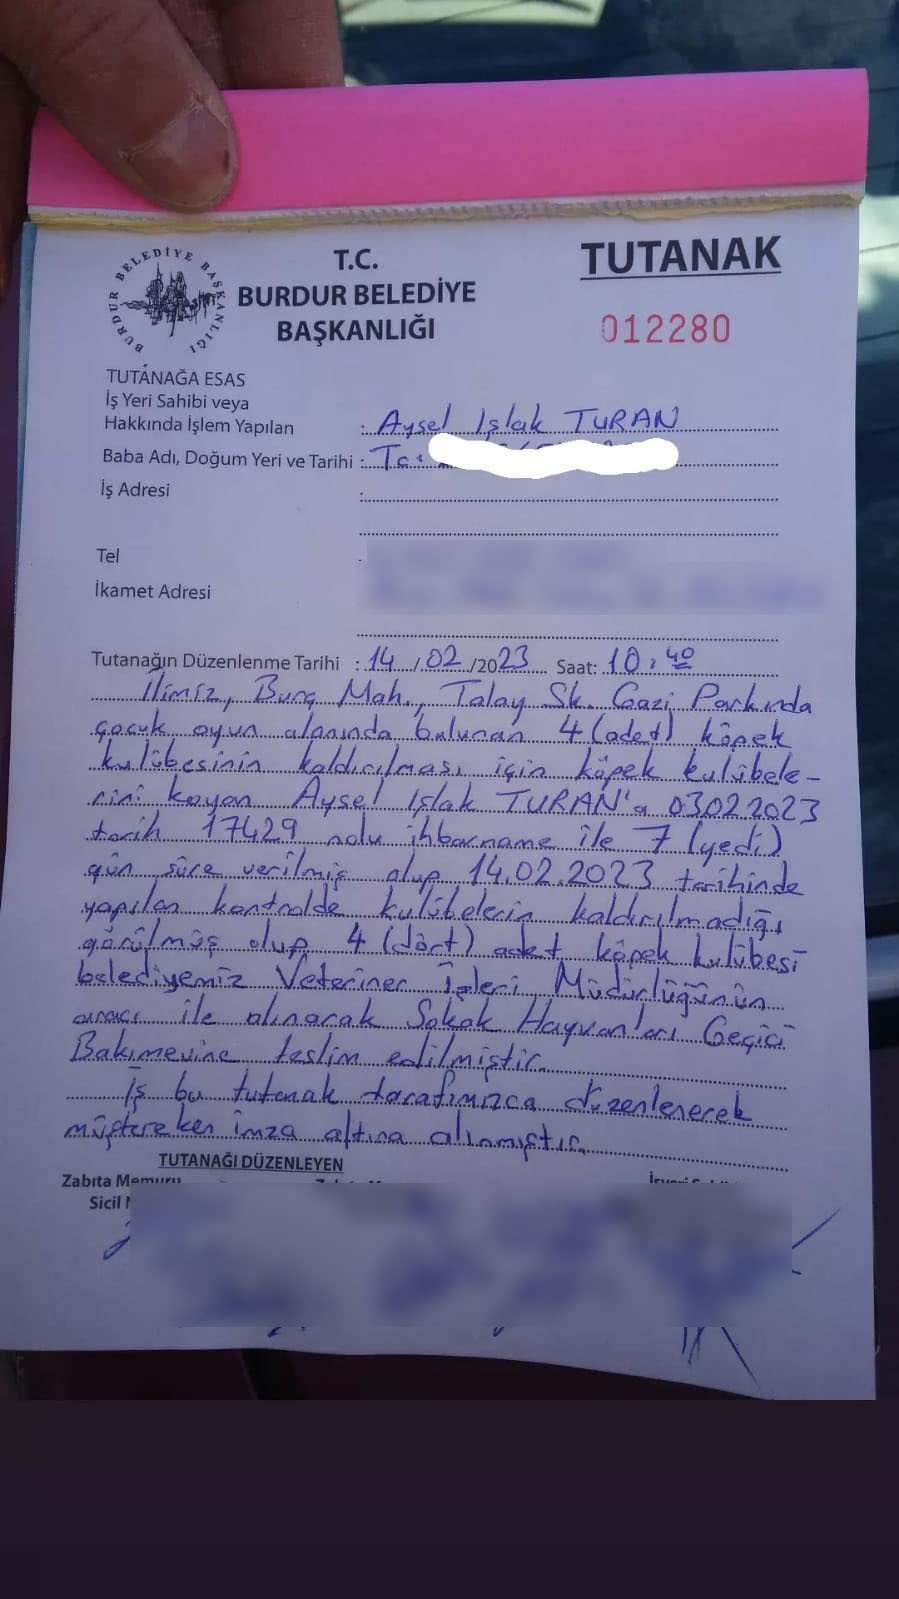 BURDUR BELEDİYE BAŞKANLIĞI
T.C.
BURDUR BELEDİYE
BAŞKANLIĞI
TUTANAK
012280
TUTANAĞA ESAS
İş Yeri Sahibi veya
Hakkında İşlem Yapılan : Aysel Işlak TURAN
Baba Adı, Doğum Yeri ve Tarihi : Tc:
İş Adresi :
Tel
İkamet Adresi
Tutanağın Düzenlenme Tarihi : 14 / 02 / 2023 Saat: 10:40
İlimiz, Burç Mah., Talay Sk. Gazi Parkında
çocuk oyun alanında bulunan 4 (adet) köpek
kulübesinin kaldırılması için köpek kulübele-
rini koyan Aysel Işlak TURAN'a 03.02.2023
tarih 17429 nolu ihbarname ile 7 (yedi)
gün süre verilmiş olup 14.02.2023 tarihinde
yapılan kontrolde kulübelerin kaldırılmadığı
görülmüş olup 4 (dört) adet köpek kulübesi
belediyemiz Veteriner İşleri Müdürlüğünün
aracı ile alınarak Sokak Hayvanları Geçici
Bakımevine teslim edilmiştir.
İş bu tutanak tarafımızca düzenlenerek
müştereken imza altına alınmıştır.
TUTANAĞI DÜZENLEYEN
Zabıta Memuru
Sicil